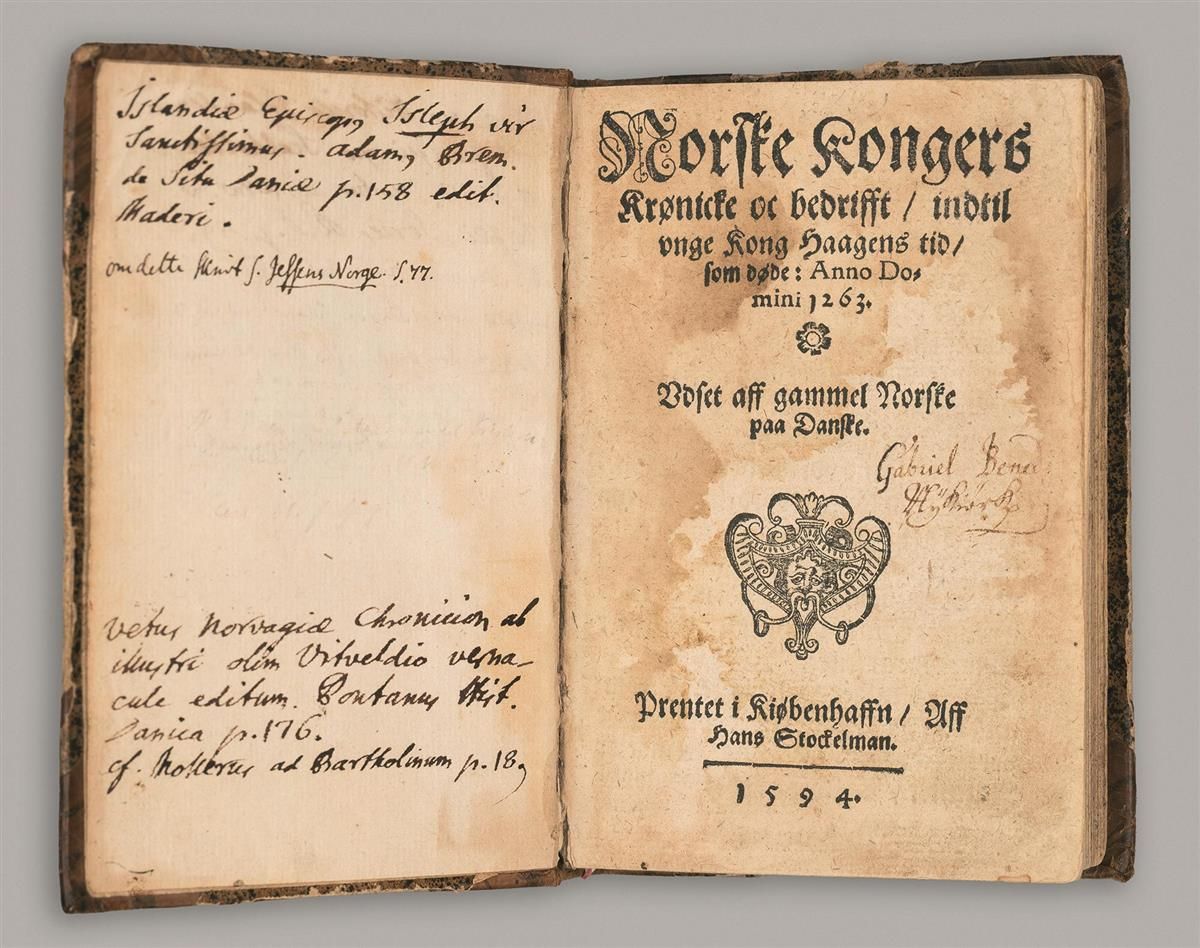 Islandiæ Episcopꝯ Isleph vir
Sanctissimus. Adamꝯ Brem.
de Situ Daniæ p. 158 edit.
Maderi.
om dette Skrivt s. Jessens Norge. S. 77.
vetus Norvagiæ Chronicion ab
illustri olim Vitveldio verna-
cule editum. Pontanus Hist.
Danica p. 176.
cf. Mollerus ad Bartholinum p. 18
Norske Kongers
Krønicke oc bedrifft / indtil
vnge Kong Haagens tid /
som døde: Anno Do-
mini 1263.
Vdset aff gammel Norske
paa Danske.
Gabriel
Prentet i Kiøbenhaffn / Aff
Hans Stockelman.
1594.